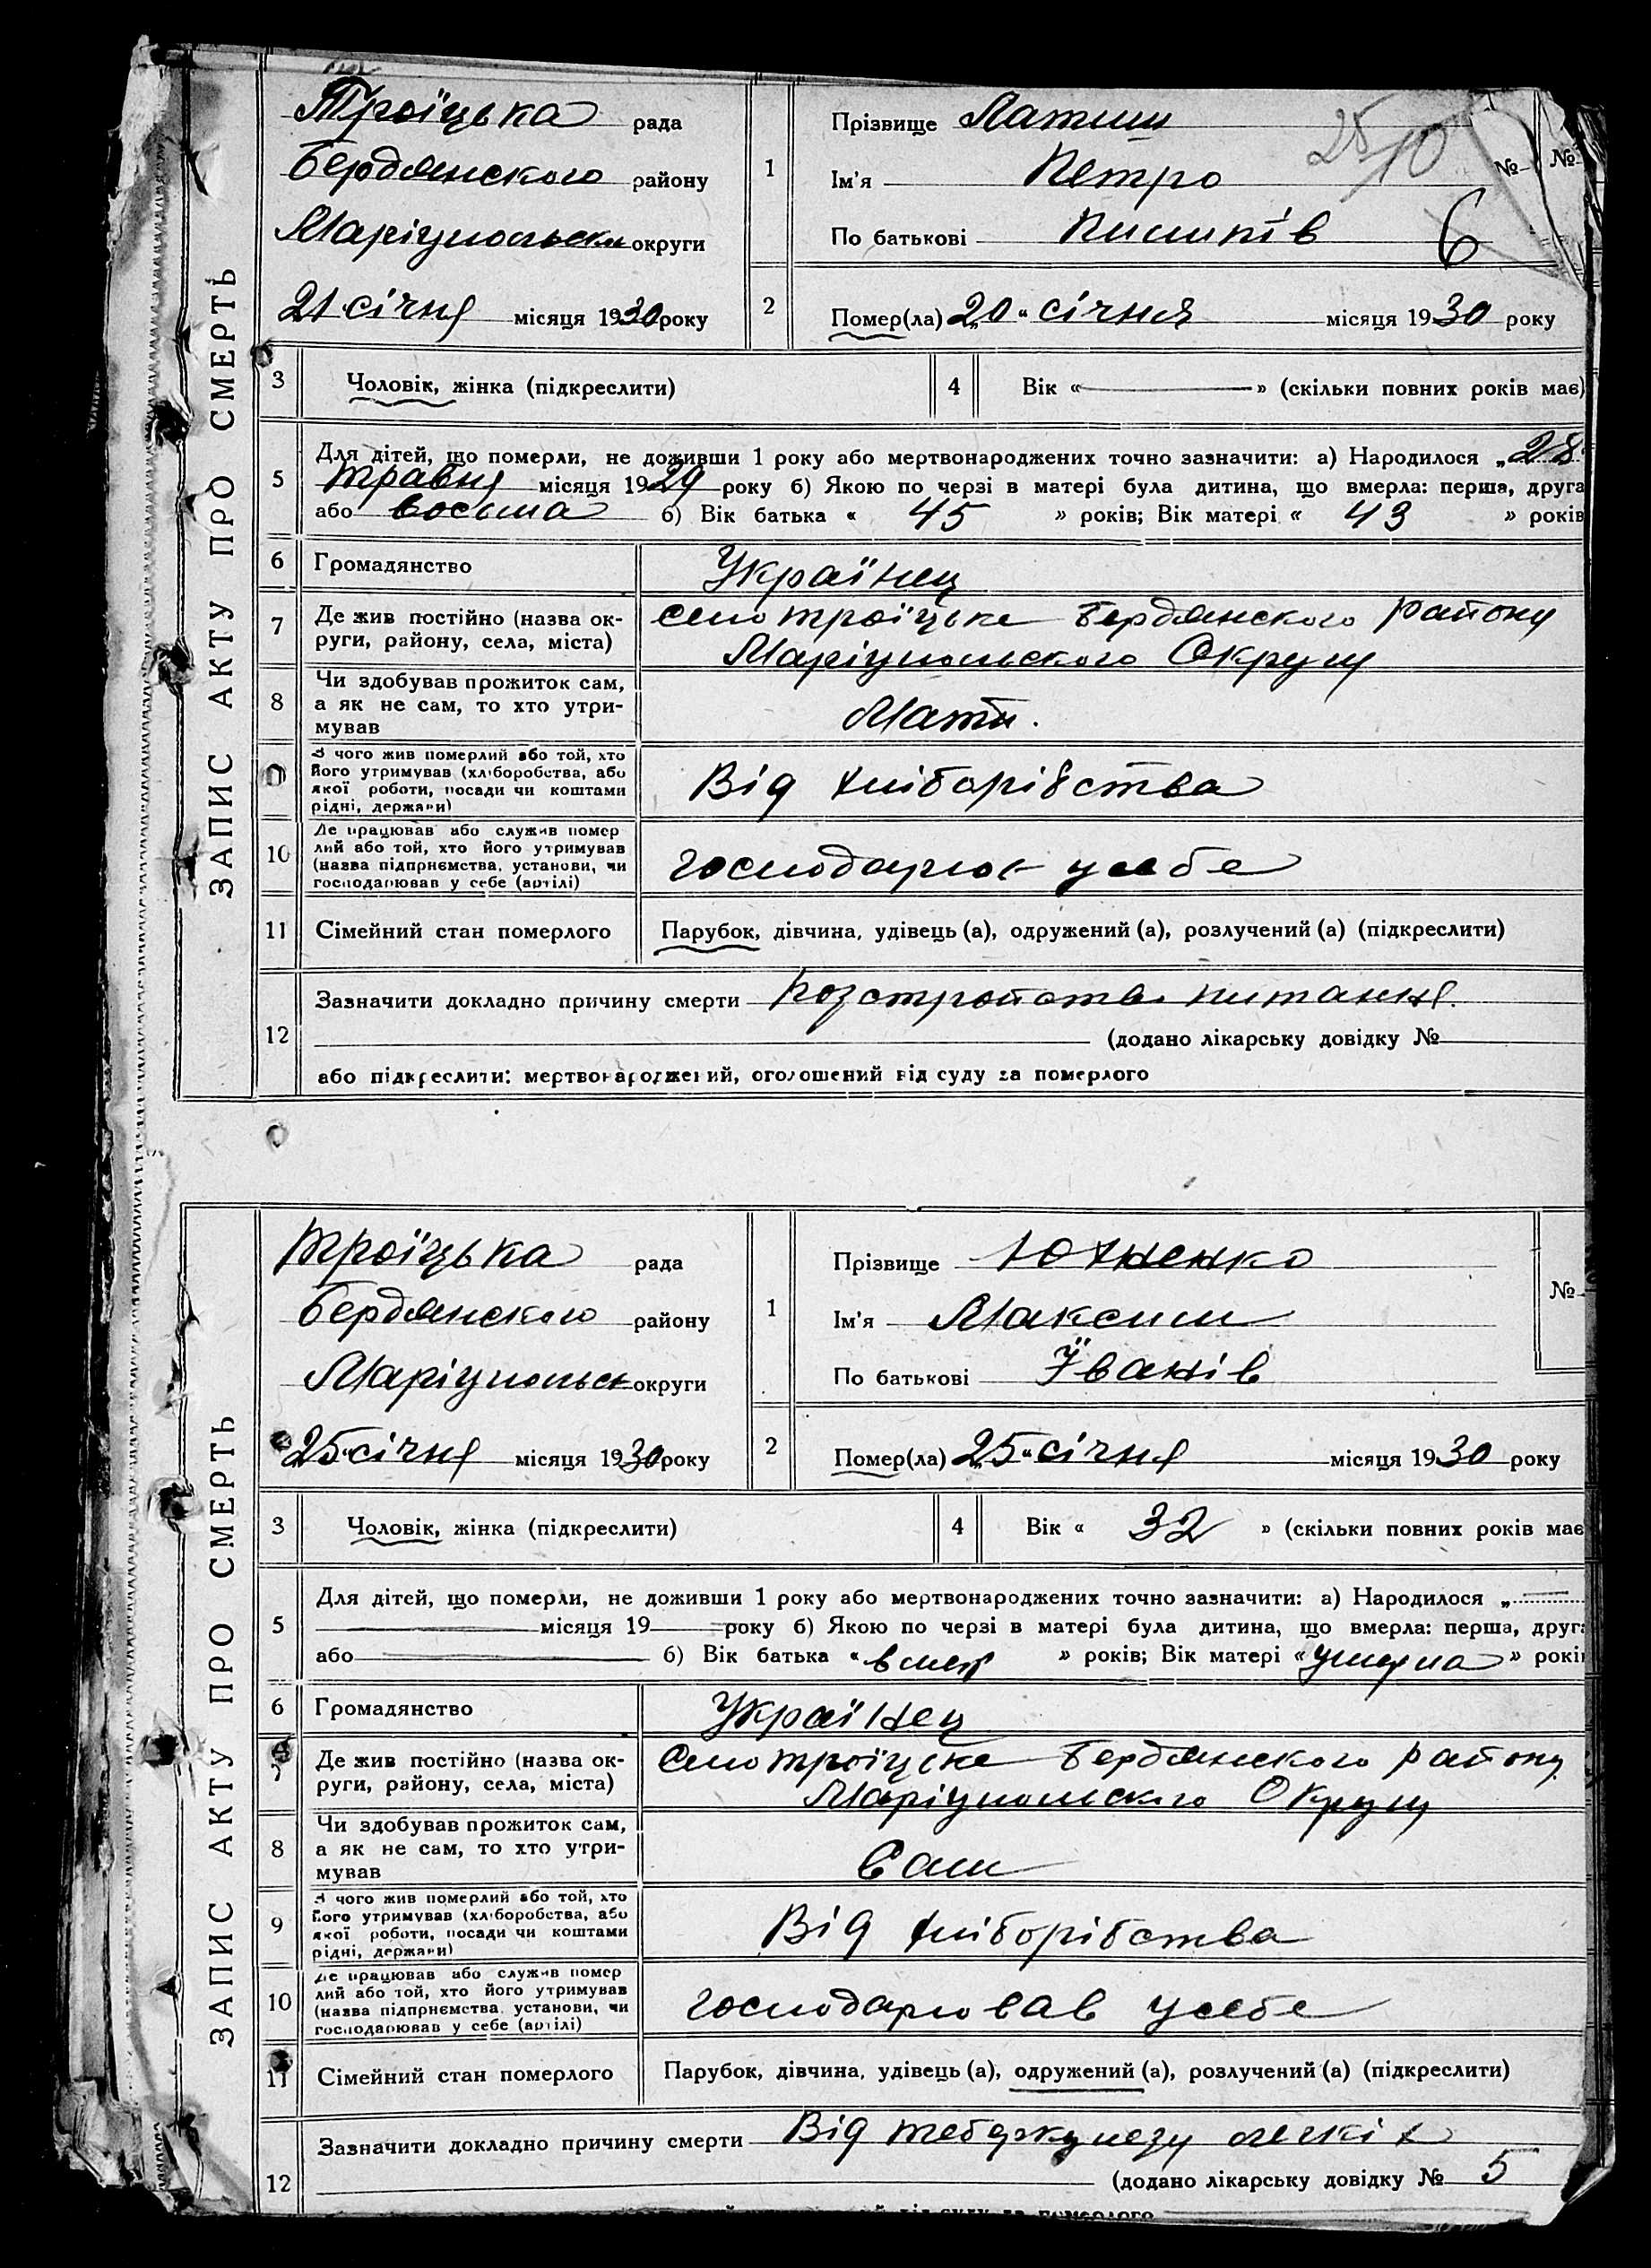 ЗАПИС АКТУ ПРО СМЕРТЬ
Троїцька рада
Бердянского району
округи
21 січня місяця 1930 року
1
Прізвище Латиш
Ім'я Петро
По батькові Пилипів
25/10
№ №
6
2
Помер(ла) „20“ січня місяця 1930 року
3 Чоловік, жінка (підкреслити) 4 Вік « — » (скільки повних років має)
5 Для дітей, що померли, не доживши 1 року або мертвонароджених точно зазначити: а) Народилося „28
травня місяця 1929 року б) Якою по черзі в матері була дитина, що вмерла: перша, друга
або восьма б) Вік батька « 45 » років; Вік матері « 43 » років
6 Громадянство Українец
7 Де жив постійно (назва округи, району, села, міста) село троїцьке Бердянского району
Маріупольского Округу
8 Чи здобував прожиток сам, а як не сам, то хто утримував Мати.
9 З чого жив померлий або той, хто його утримував (хліборобства, або якої роботи, посади чи коштами рідні, держави) Від хліборібства
10 Де працював або служив померлий або той, хто його утримував (назва підприємства, установи, чи господарював у себе (артілі) усебе
11 Сімейний стан померлого Парубок, дівчина, удівець (а), одружений (а), розлучений (а) (підкреслити)
12 Зазначити докладно причину смерти питання.
(додано лікарську довідку №
або підкреслити: мертвонароджений, оголошений від суду за померлого
ЗАПИС АКТУ ПРО СМЕРТЬ
Троїцька рада
Бердянского району
округи
25 січня місяця 1930 року
1
Прізвище Юхненко
Ім'я Максим
По батькові Їванів
№
2
Помер(ла) „25“ січня місяця 1930 року
3 Чоловік, жінка (підкреслити) 4 Вік « 32 » (скільки повних років має
5 Для дітей, що померли, не доживши 1 року або мертвонароджених точно зазначити: а) Народилося „
місяця 19 року б) Якою по черзі в матері була дитина, що вмерла: перша, друга
або б) Вік батька « » років; Вік матері « умерла » років
6 Громадянство Українец
7 Де жив постійно (назва округи, району, села, міста) село троїцке Бердянского району
Маріупольского Округу
8 Чи здобував прожиток сам, а як не сам, то хто утримував Сам
9 З чого жив померлий або той, хто його утримував (хліборобства, або якої роботи, посади чи коштами рідні, держави) Від хліборібства
10 Де працював або служив померлий або той, хто його утримував (назва підприємства, установи, чи господарював у себе (артілі) господарював усебе
11 Сімейний стан померлого Парубок, дівчина, удівець (а), одружений (а), розлучений (а) (підкреслити)
12 Зазначити докладно причину смерти Від легкіх
(додано лікарську довідку № 5